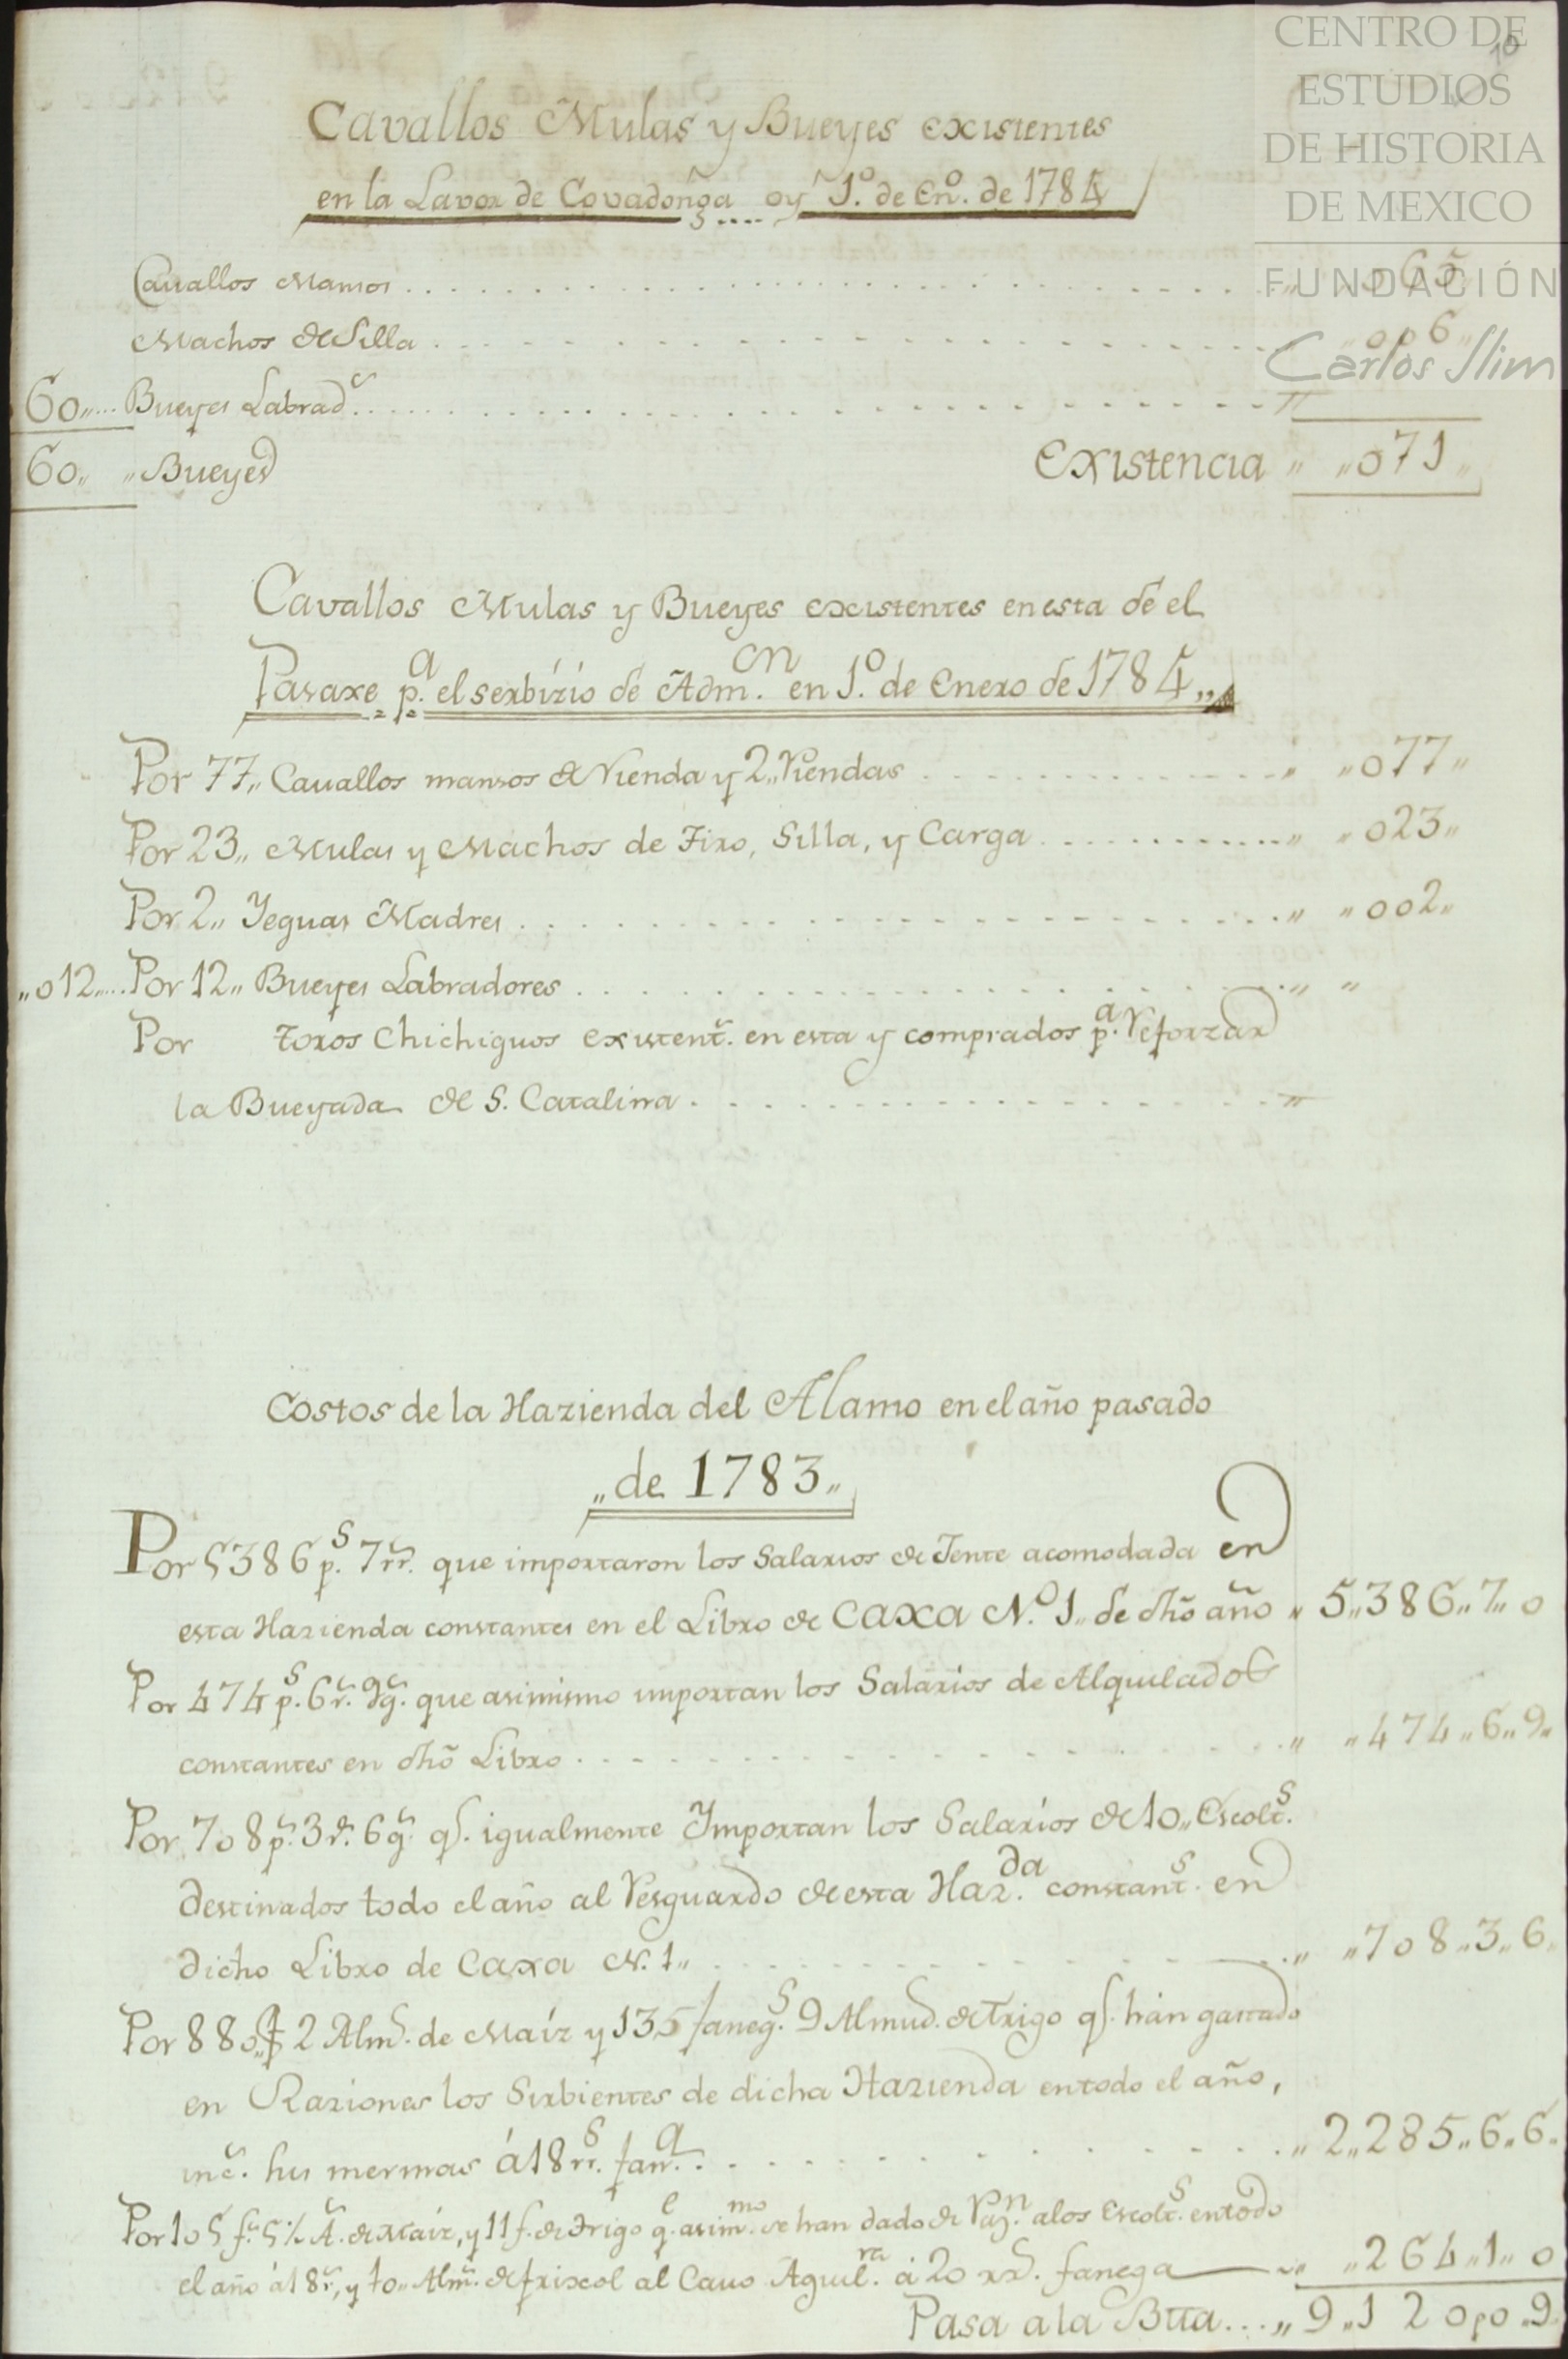 CENTRO DE
ESTUDIOS
DE HISTORIA
DE MEXICO
FUNDACIÓN
Carlos Slim
10
Cavallos Mulas y Bueyes existentes
en la Lavor de Covadonga oy 1.º de En.º de 1784
Cavallos Mansos . . . . . . . . . . „ 065
Machos de Silla . . . . . . . . . . „ 006„
60„... Bueyes Labrad.s . . . . . . . . . . „
60„ „Bueyes Existencia „ „071„
Cavallos Mulas y Bueyes existentes en esta de el
Pasaxe p.a el serbizio de Adm.cn en 1.º de Enero de 1784„
Por 77„ Cavallos mansos de Rienda y 2„ Riendas . . . . . „ „077„
Por 23„ Mulas y Machos de Tiro, Silla, y Carga . . . . . „ „023„
Por 2„ Yeguas Madres . . . . . . . . . . „ „002„
„012„... Por 12„ Bueyes Labradores . . . . . . . . . . „ „
Por toros Chichiguos existent.s en esta y comprados p.a Reforzar
la Bueyada de S. Catalina . . . . . . . . . . „
Costos de la Hazienda del Alamo en el año pasado
„de 1783„
Por 5386 p.s 7 rr.s que importaron los Salarios de Jente acomodada en
esta Hazienda constantes en el Libro de Caxa N.º 1„ de dhõ año „ 5„386„7„0
Por 474 p.s 6 r.s 9 g.s que asimismo importan los Salarios de Alquilados
constantes en dhõ Libro . . . . . . . . . . „ „474„6„9„
Por 708 p.s 3 r.s 6 g.s q.e igualmente Ymportan los Salarios de 10„ Escolt.s
destinados todo el año al Resguardo de esta Haz.da constant.s en
dicho Libro de Caxa N. 1„ . . . . . . . . . . „ „708„3„6„
Por 880„ f.s 2 Alm.s de Maíz y 135 faneg.s 9 Almud.s de Trigo q.e han gastado
en Raziones los Sirbientes de dicha Hazienda en todo el año,
inc.s sus mermas á 18 rr.s fan.a . . . . . . . . . . „ 2„285„6„6„
Por 105 f.s 5½ A.s de Maíz, y 11 f. de Trigo q.e asim.mo se han dado de Raz.n a los Escolt.s en todo
el año á 18 r.s, y 10„ Alm.s de frixol al Cavo Aguil.ra á 20 rr.s fanega „ „264„1„0
Pasa a la Bta... „ 9„120„0„9„